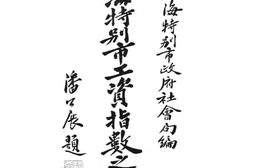 海特別市政府社會局編
海特別市工資指數之
潘公展題